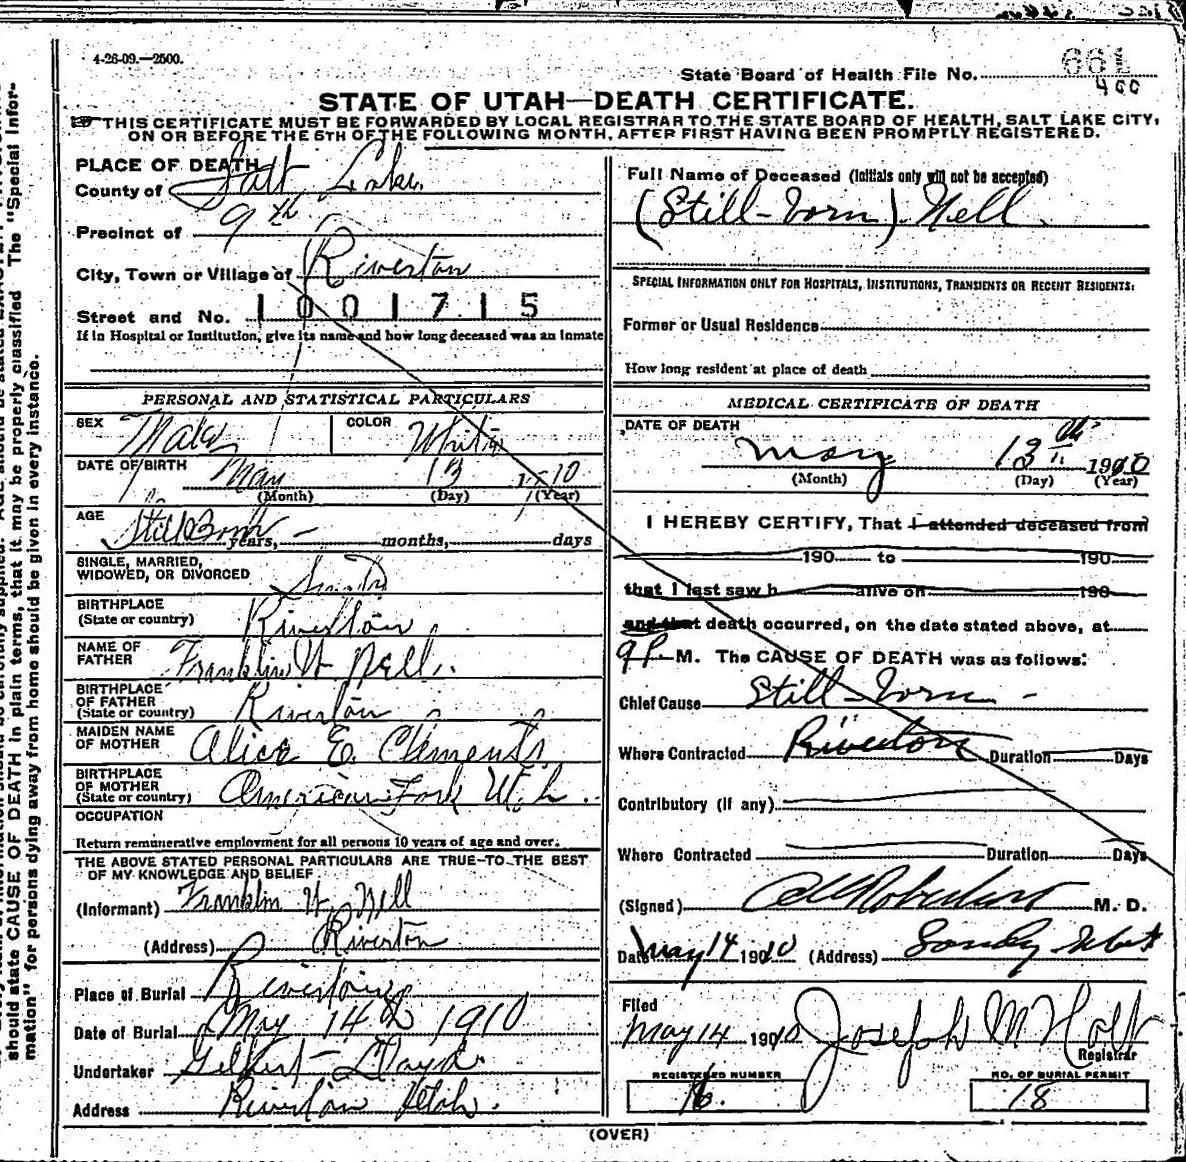 4-26-09.—2500.
State Board of Health File No. 661
400
STATE OF UTAH—DEATH CERTIFICATE.
THIS CERTIFICATE MUST BE FORWARDED BY LOCAL REGISTRAR TO THE STATE BOARD OF HEALTH, SALT LAKE CITY,
ON OR BEFORE THE 5TH OF THE FOLLOWING MONTH, AFTER FIRST HAVING BEEN PROMPTLY REGISTERED.
PLACE OF DEATH
County of Salt Lake
Precinct of 9th
City, Town or Village of Riverton
Street and No. 1001715
If in Hospital or Institution, give its name and how long deceased was an inmate
PERSONAL AND STATISTICAL PARTICULARS
SEX Male COLOR White
DATE OF BIRTH May 13 1910
(Month) (Day) (Year)
AGE Still Born years, months, days
SINGLE, MARRIED,
WIDOWED, OR DIVORCED
BIRTHPLACE
(State or country) Riverton
NAME OF
FATHER Franklin W Nell
BIRTHPLACE
OF FATHER
(State or country) Riverton
MAIDEN NAME
OF MOTHER Alice E. Clements
BIRTHPLACE
OF MOTHER
(State or country) American Fork Utah.
OCCUPATION
Return remunerative employment for all persons 10 years of age and over.
THE ABOVE STATED PERSONAL PARTICULARS ARE TRUE TO THE BEST
OF MY KNOWLEDGE AND BELIEF
(Informant) Franklin W Nell
(Address) Riverton
Place of Burial Riverton
Date of Burial May 14th 1910
Undertaker Gilbert Lloyd
Address Riverton Utah.
Full Name of Deceased (Initials only will not be accepted)
(Still-born) Nell
SPECIAL INFORMATION ONLY FOR HOSPITALS, INSTITUTIONS, TRANSIENTS OR RECENT RESIDENTS:
Former or Usual Residence
How long resident at place of death
MEDICAL CERTIFICATE OF DEATH
DATE OF DEATH
May 13th 1910
(Month) (Day) (Year)
I HEREBY CERTIFY, That I attended deceased from
190 to 190
that I last saw h alive on 190
and that death occurred, on the date stated above, at
9 P. M. The CAUSE OF DEATH was as follows:
Chief Cause Still-born
Where Contracted Riverton Duration Days
Contributory (if any)
Where Contracted Duration Days
(Signed) M. D.
Date May 14 1910 (Address) Sandy Utah
Filed
May 14 1910 Joseph M Holt
Registrar
REGISTERED NUMBER
16.
NO. OF BURIAL PERMIT
18
(OVER)
should state CAUSE OF DEATH in plain terms, that it may be properly classified The "Special Infor-
mation" for persons dying away from home should be given in every instance.